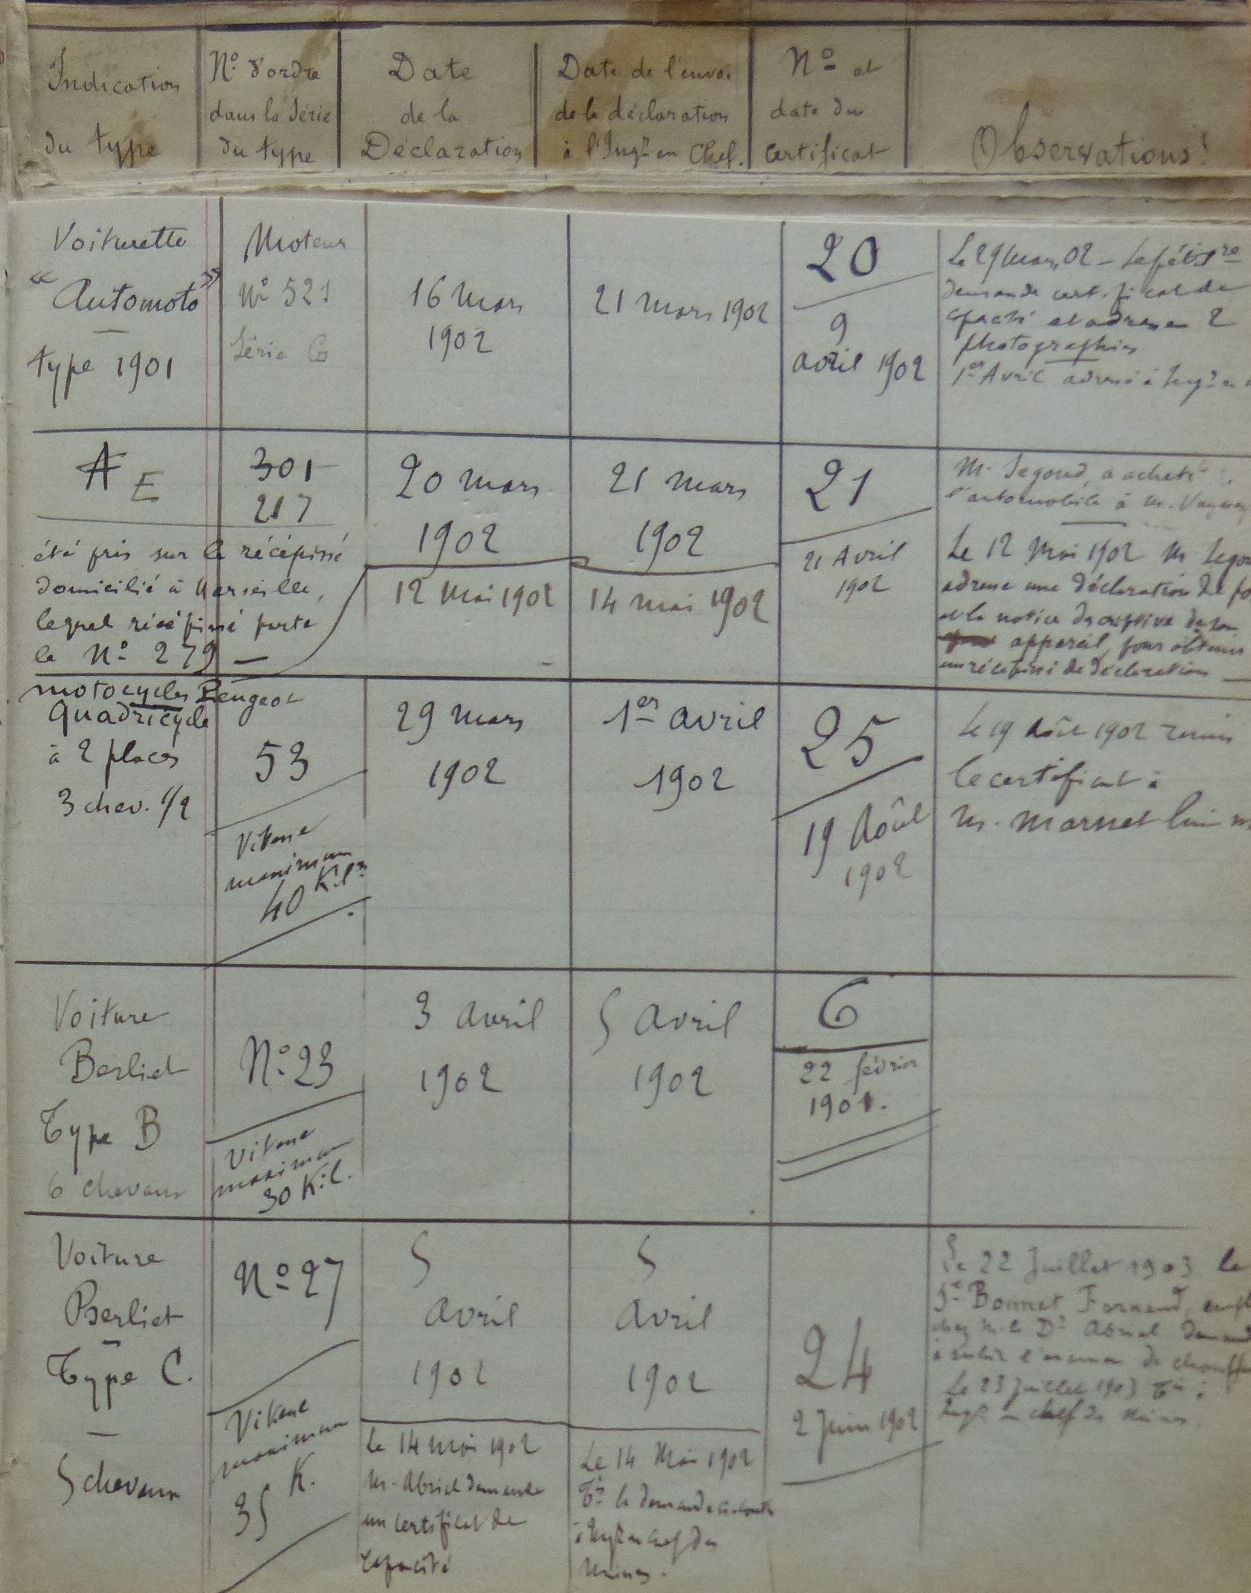 Indication
du type
N° d'ordre
dans la Série
du type
Date
de la
Déclaration
Date de l'envoi
de la déclaration
à l'Ingr en Chef.
N° et
date du
certificat
Observations
Voiturette
"Automoto"
type 1901
Moteur
N° 521
Série
16 mars
1902
21 mars 1902
20
9
avril 1902
Le 29 mars 02 -
demande certificat de
et adresse 2
photographies
1er Avril adressé à Ingr en
A E
301
217
été pris sur le récépissé
domicilié à Marseille,
lequel récépissé porte
le N° 279 -
20 mars
1902
12 Mai 1902
21 mars
1902
14 mai 1902
21
21 Avril
1902
M. Segond, a acheté
l'automobile à M.
Le 12 Mai 1902 M
adresse une déclaration de
et la notice descriptive de son
appareil, pour obtenir
un récépissé de déclaration
motocycles Peugeot
Quadricycle
à 2 places
3 chev. 1/2
53
Vitesse
maximum
40 Kilm
29 mars
1902
1er avril
1902
25
19 Août
1902
Le 19 Août 1902 remis
le certificat à
M. Marnet
Voiture
Berliet
Type B
6 chevaux
N° 23
Vitesse
maximum
30 Kil.
3 avril
1902
5 avril
1902
6
22 février
1901.
Voiture
Berliet
Type C.
5 chevaux
N° 27
Vitesse
maximum
K.
35
5
avril
1902
Le 14 Mai 1902
M. Abriel demande
un certificat de
capacité
5
avril
1902
Le 14 Mai 1902
Tr. la demande ci-contre
à Ingr en chef des
Mines.
24
2 Juin 1902
Le 22 Juillet 1903 le
Sr Bonnet Fernand,
chez M. le Dr Abriel
à subir l'examen de
Le 23 Juillet 1903 Tr. à
Ingr en chef des Mines.